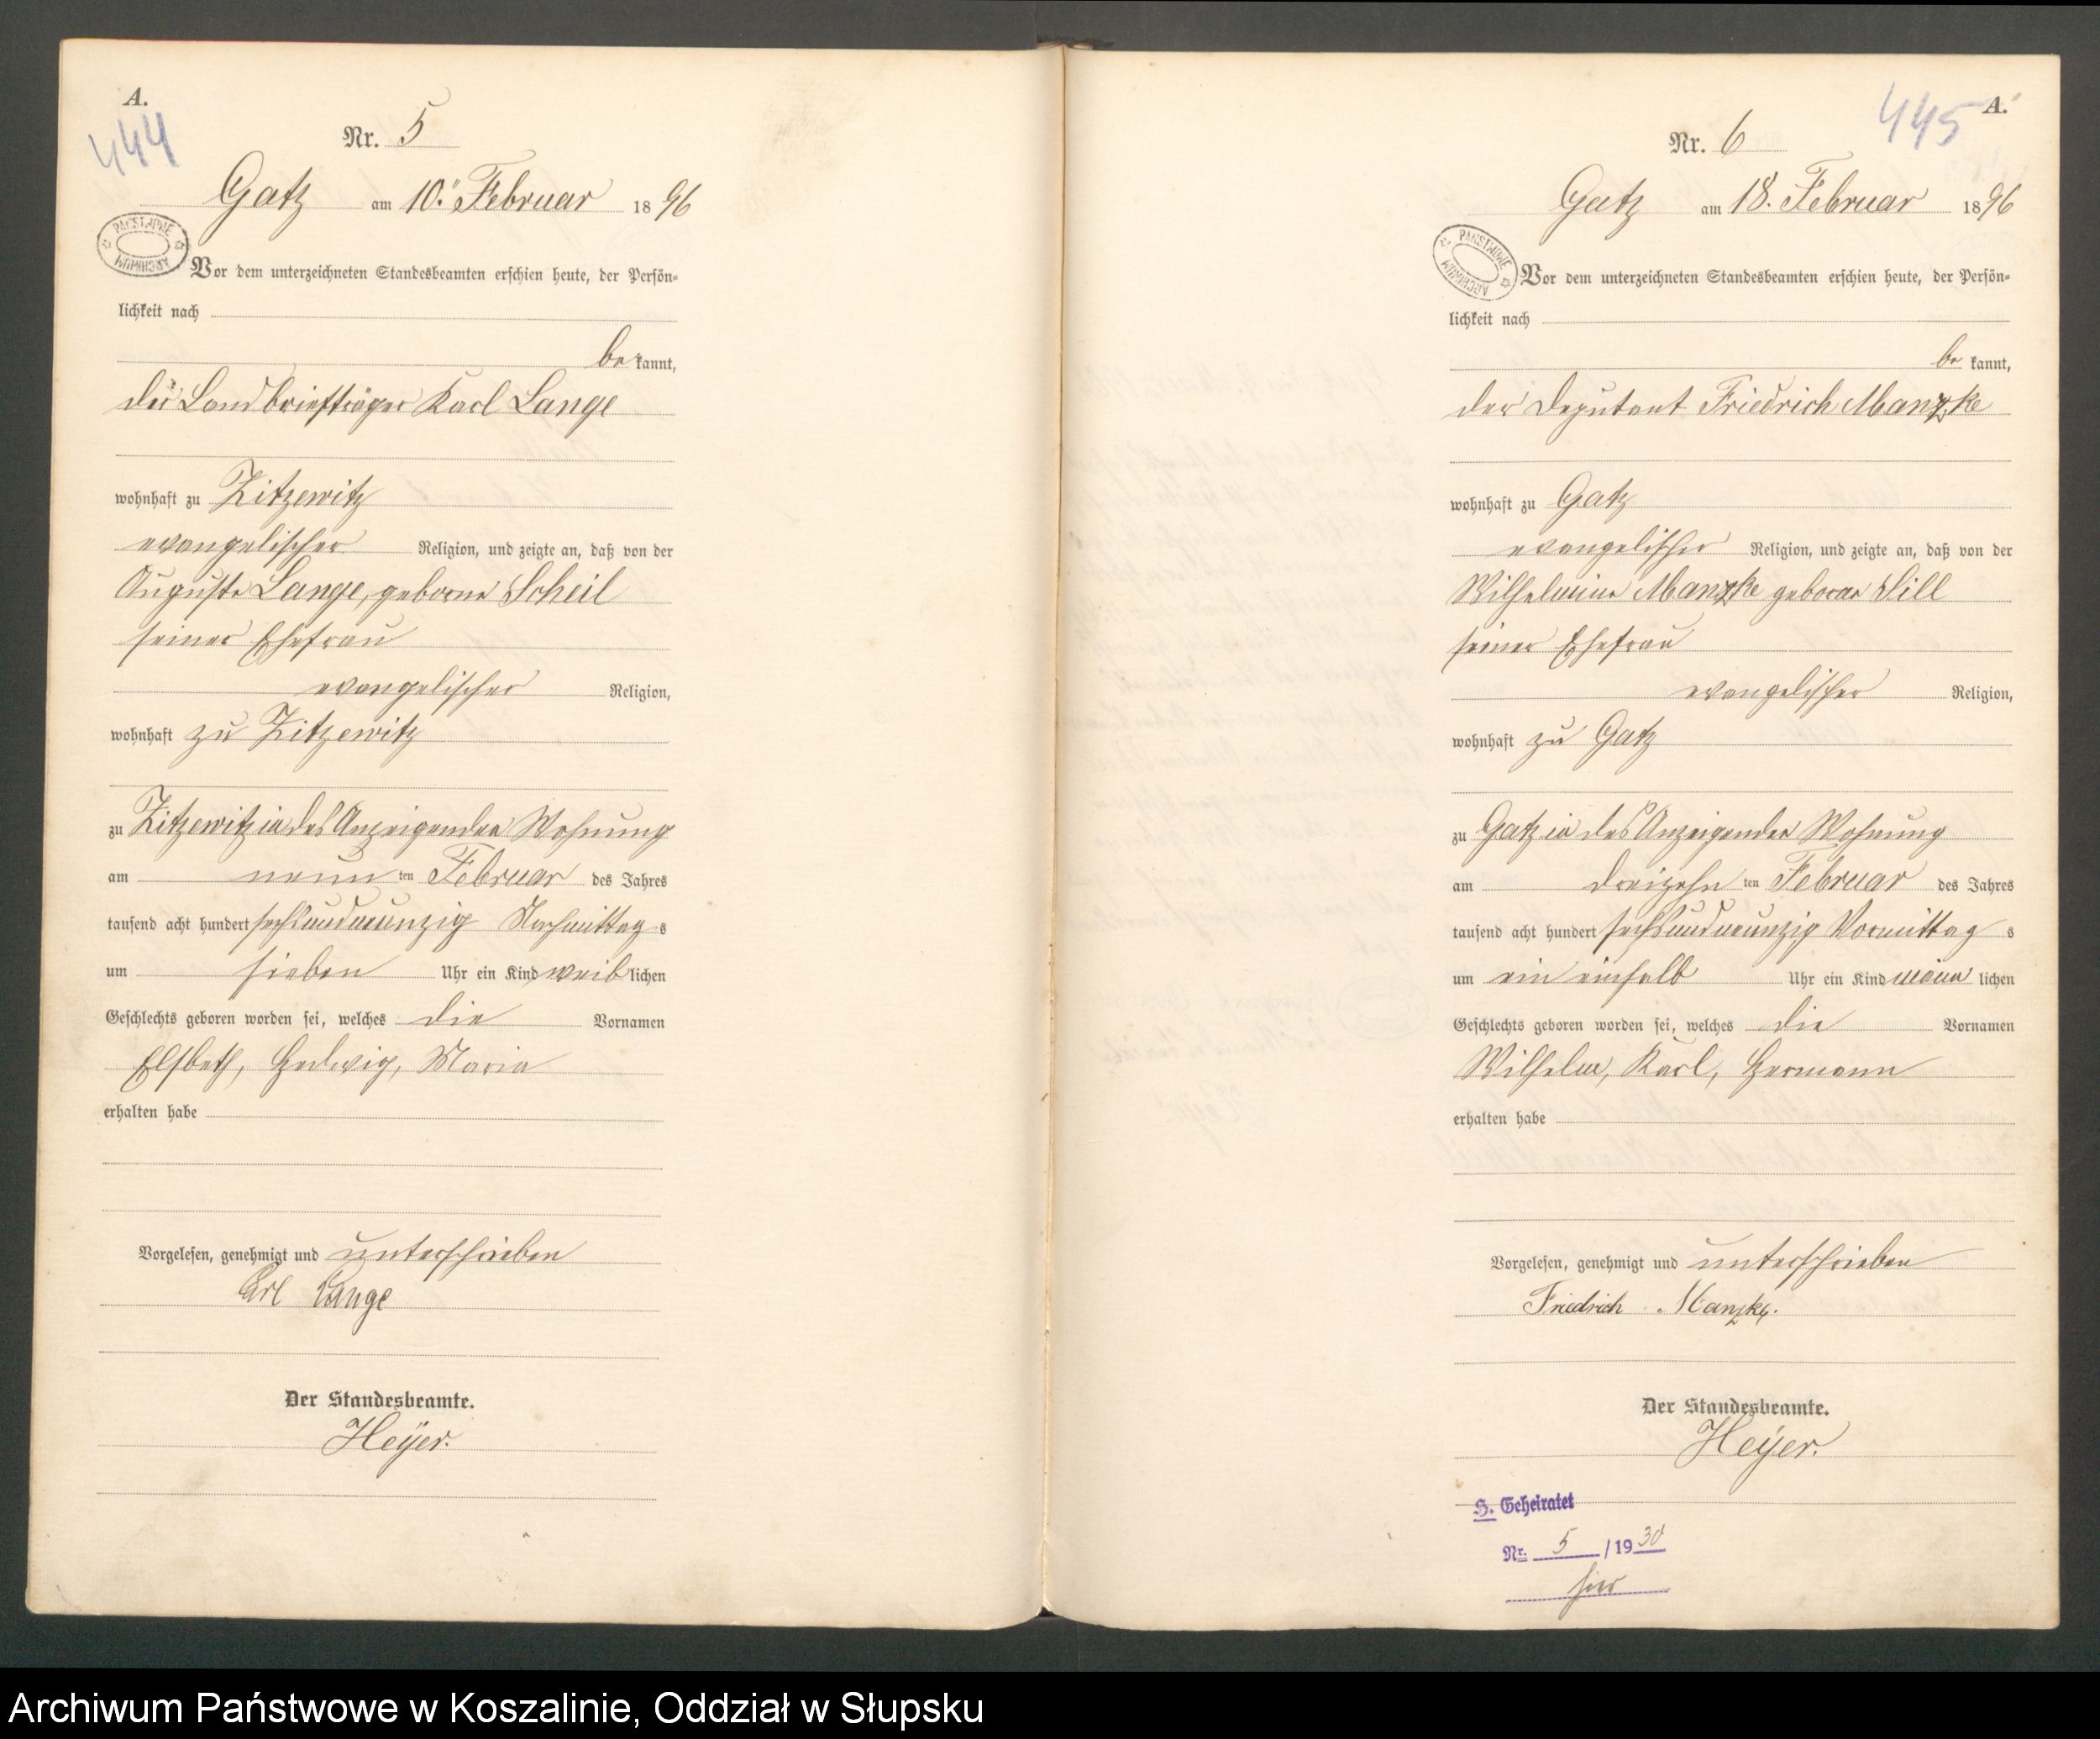 A.
444
Nr. 5
Gatz am 10. Februar 1896
PAŃSTWOWE ARCHIWUM
Vor dem unterzeichneten Standesbeamten erschien heute, der Persön-
lichkeit nach
be kannt,
der Landbriefträger Karl Lange
wohnhaft zu Zitzewitz
evangelischer Religion, und zeigte an, daß von der
Auguste Lange, geborne Scheil
seiner Ehefrau
evangelischer Religion,
wohnhaft zu Zitzewitz
zu Zitzewitz in des Anzeigenden Wohnung
am neun ten Februar des Jahres
tausend acht hundert sechsundneunzig Nachmittag s
um sieben Uhr ein Kind weib lichen
Geschlechts geboren worden sei, welches die Vornamen
Elsbeth, Hedwig, Maria
erhalten habe
Vorgelesen, genehmigt und unterschrieben
Carl Lange
Der Standesbeamte.
Heÿer.
A.
445
Nr. 6
Gatz am 18. Februar 1896
PAŃSTWOWE ARCHIWUM
Vor dem unterzeichneten Standesbeamten erschien heute, der Persön-
lichkeit nach
be kannt,
der Deputant Friedrich Manzke
wohnhaft zu Gatz
evangelischer Religion, und zeigte an, daß von der
Wilhelmine Manzke geborne Sill
seiner Ehefrau
evangelischer Religion,
wohnhaft zu Gatz
zu Gatz in des Anzeigenden Wohnung
am dreizehn ten Februar des Jahres
tausend acht hundert sechsundneunzig Vormittag s
um ein einhalb Uhr ein Kind männ lichen
Geschlechts geboren worden sei, welches die Vornamen
Wilhelm, Karl, Hermann
erhalten habe
Vorgelesen, genehmigt und unterschrieben
Friedrich Manzke.
Der Standesbeamte.
Heÿer.
H. Geheiratet
Nr. 5 /1930
hier
Archiwum Państwowe w Koszalinie, Oddział w Słupsku